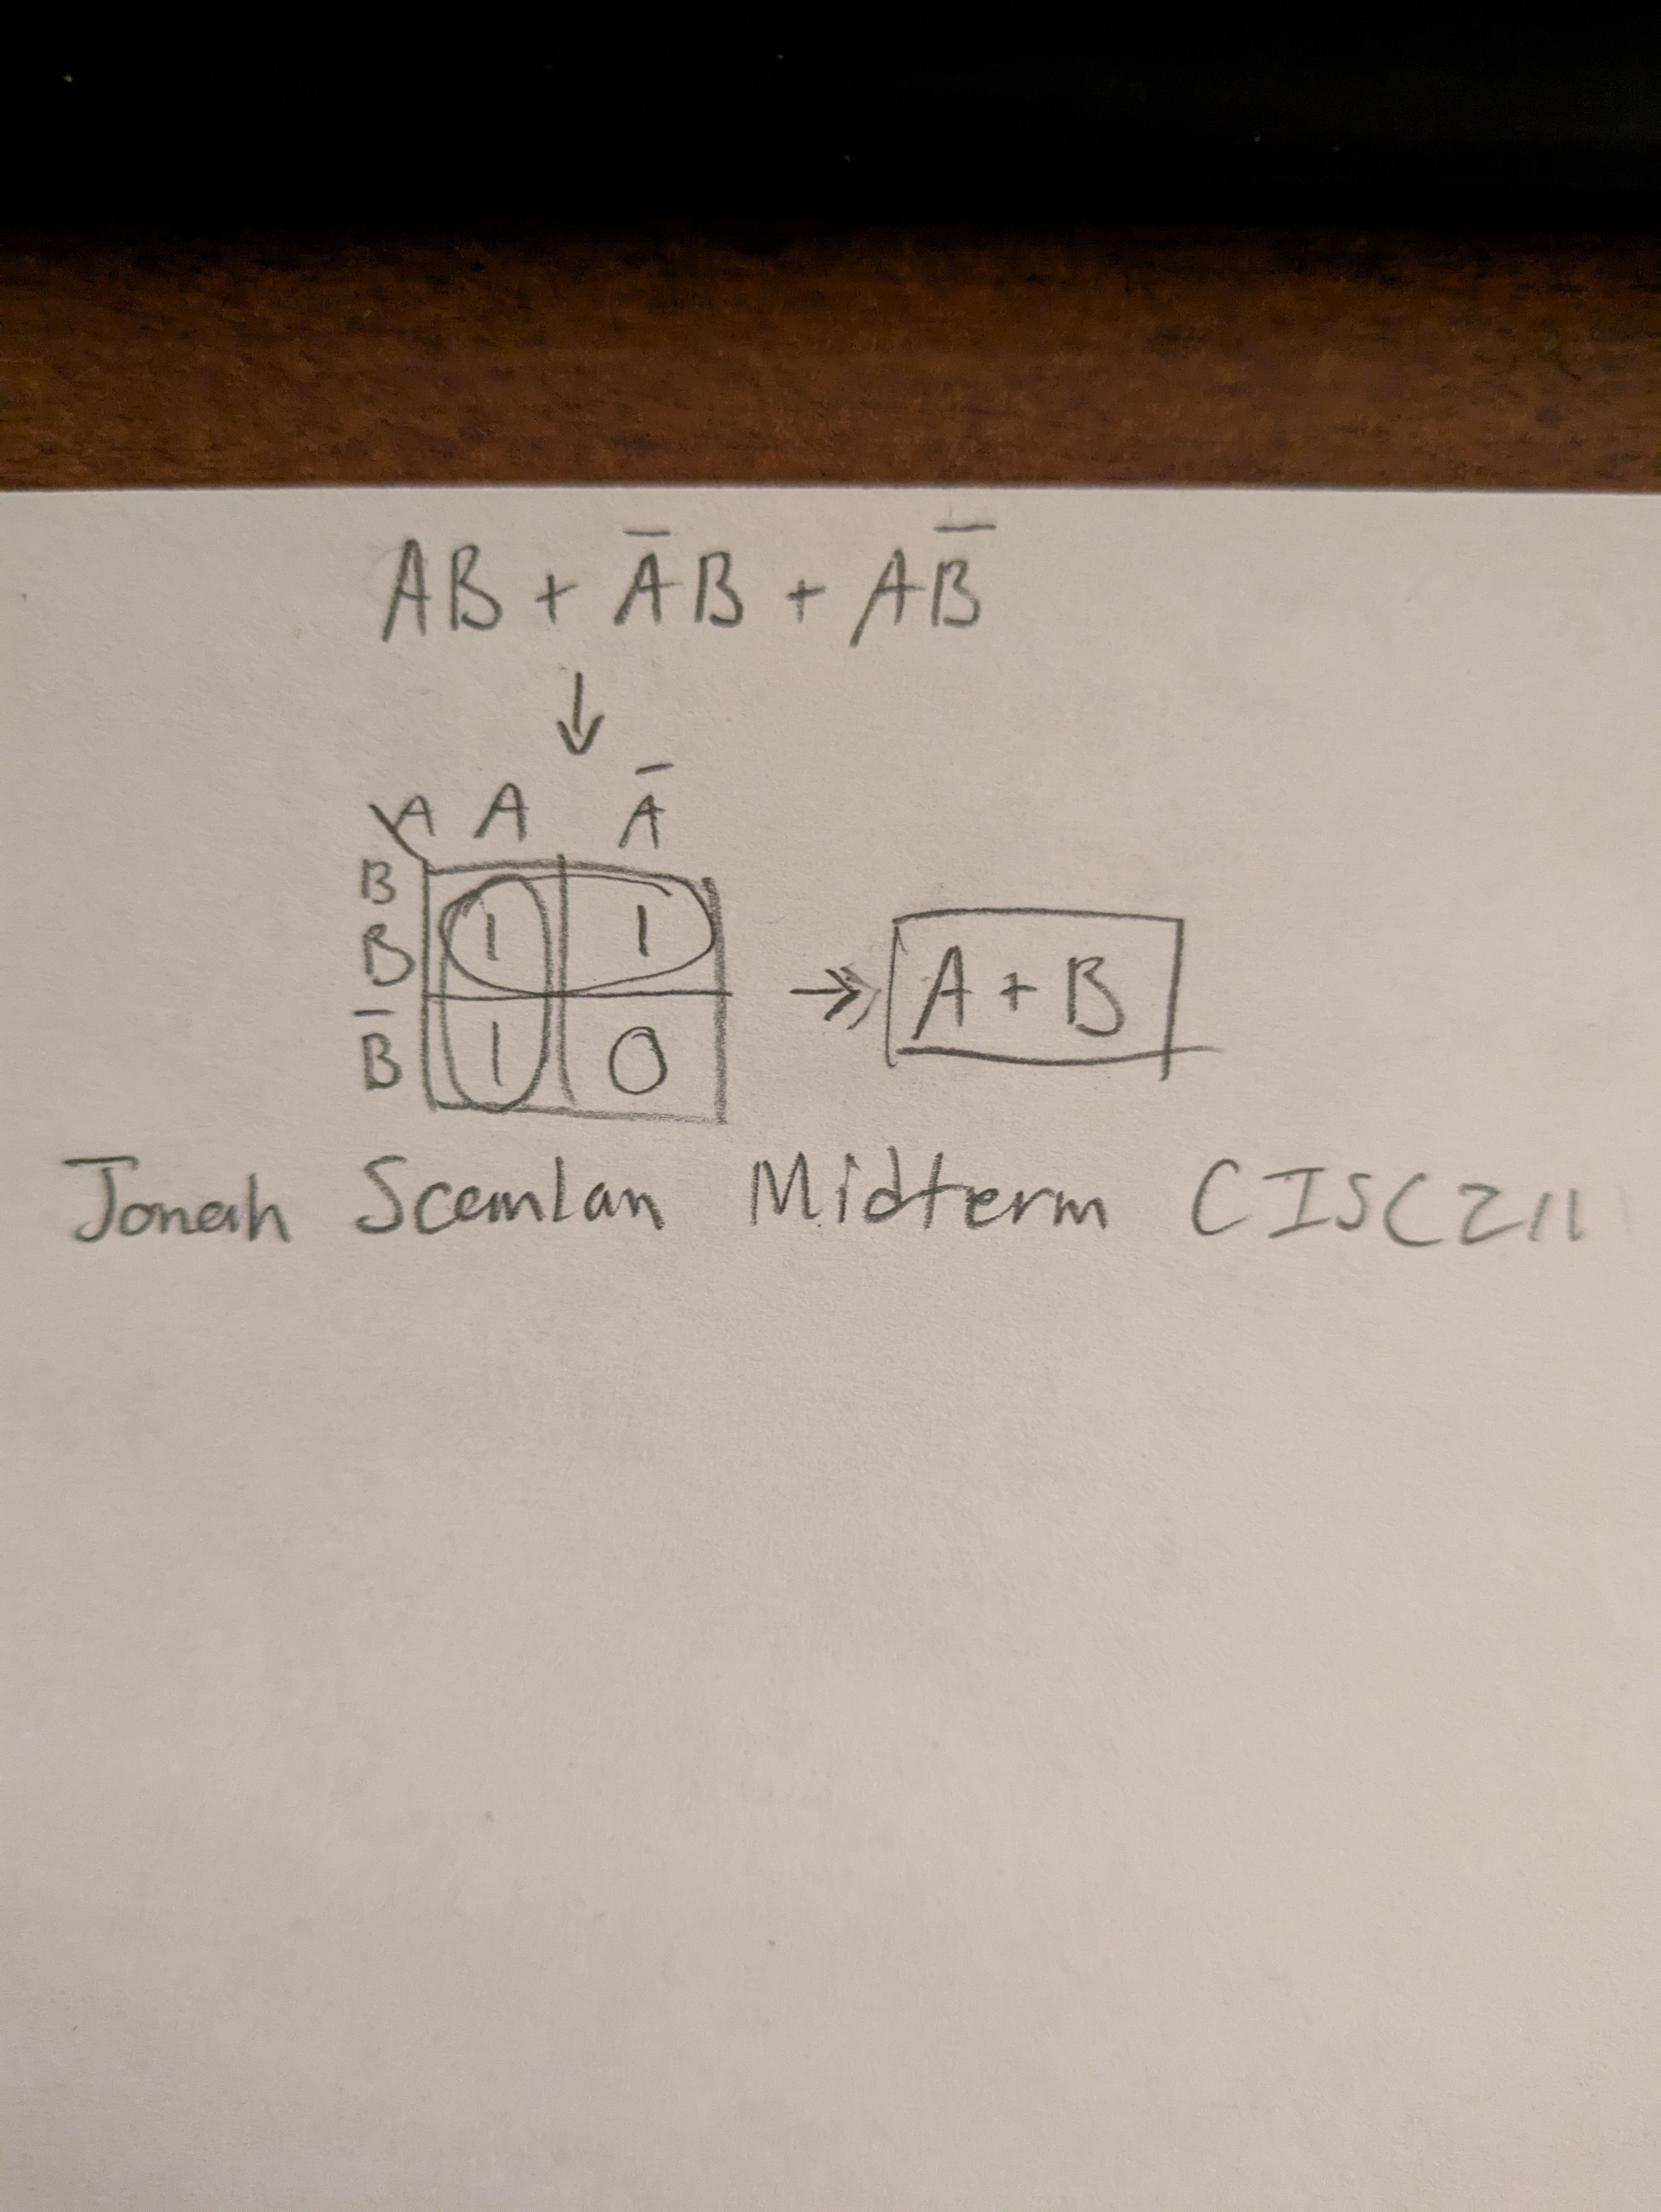 AB + A̅B + AB̅
↓
A A A̅
B
B 1 1
→ A + B
B̅ 1 0
Jonah Scanlan Midterm CISC211